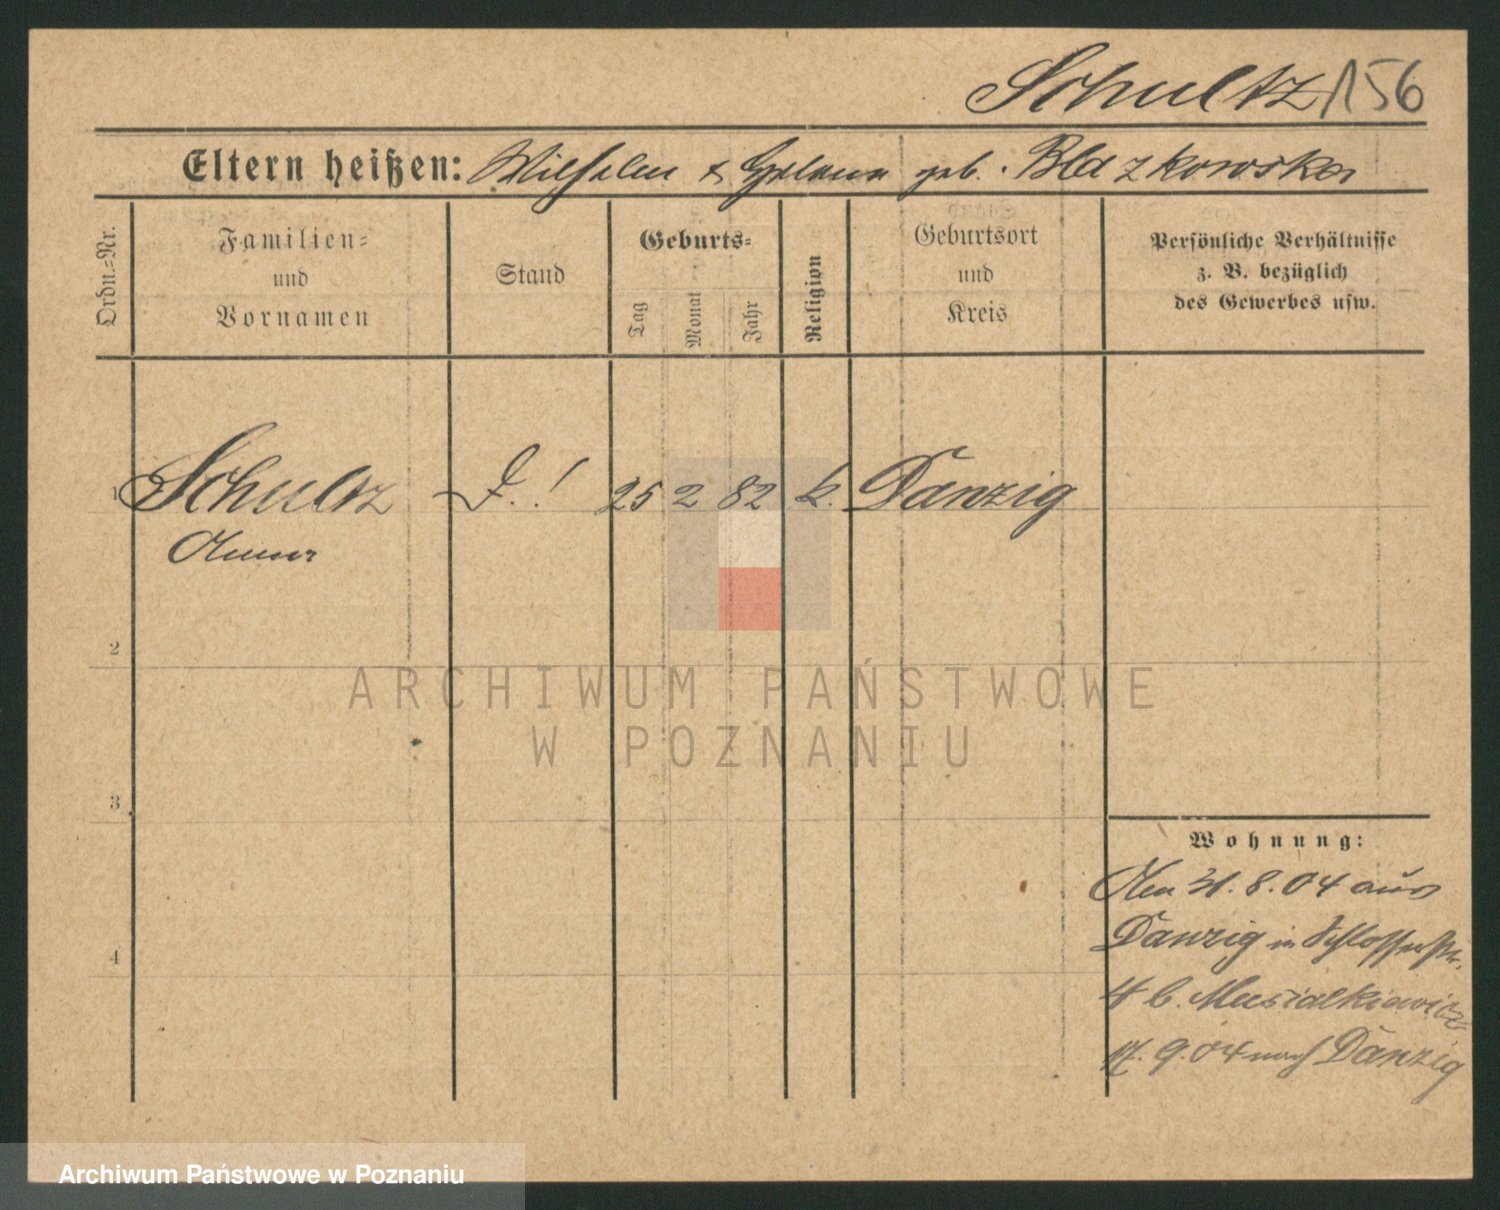 Schultz 156
Eltern heißen: Wilhelm & geb. Blazkowska
Ordn.-Nr.
Familien-
und
Vornamen
Stand
Geburts-
Tag
Monat
Jahr
Religion
Geburtsort
und
Kreis
Persönliche Verhältnisse
z. B. bezüglich
des Gewerbes usw.
1 Schultz 25 2 82 k. Danzig
Anna
2
ARCHIWUM PAŃSTWOWE
W POZNANIU
3
Wohnung:
31.8.04 aus
4
Danzig in Schlosserstr.
4 b. Musialkiewicz
17.9.04 nach Danzig
Archiwum Państwowe w Poznaniu